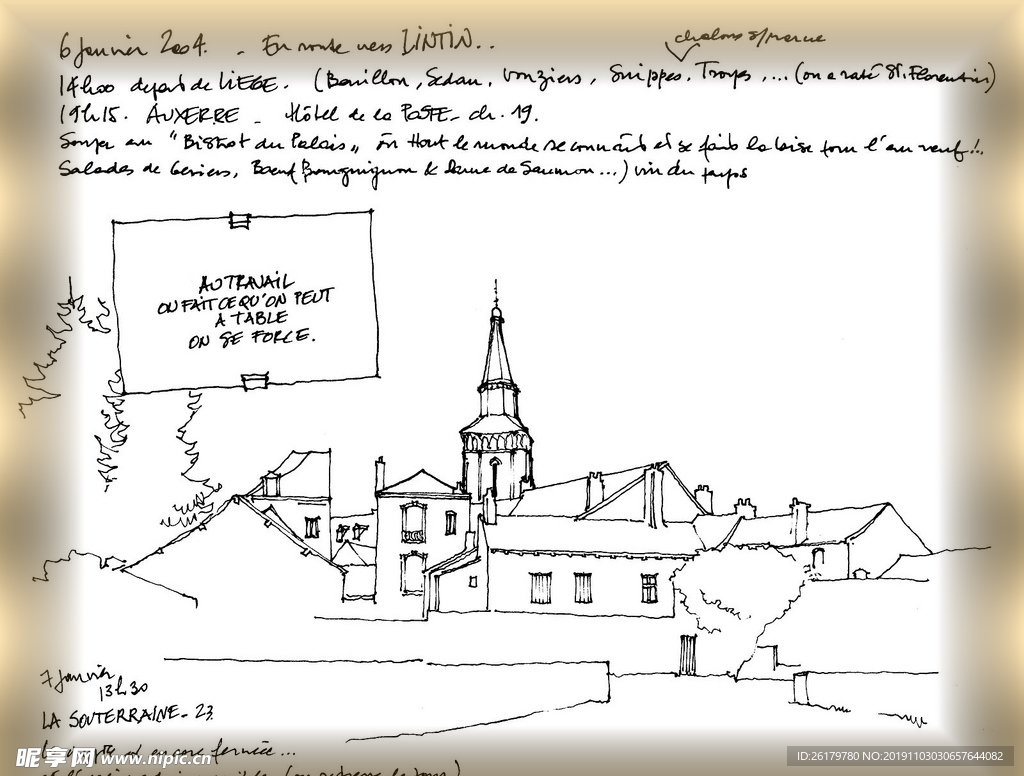 6 Janvier 2004. - En route vers LINTIN..
chalons s/marne
14h00 depart de LIEGE. (Bouillon, Sedan, Vouziers, Suippes, Troyes, ... (on a raté St. Florentin)
19h15. AUXERRE - Hôtel de la POSTE - ch. 19.
Souper au "Bistrot du Palais" où tout le monde se connaît et se fait la bise pour l'an neuf!..
Salades de Gésiers, Boeuf Bourguignon & Darne de Saumon...) vin du pays
AU TRAVAIL
ON FAIT CE QU'ON PEUT
A TABLE
ON SE FORCE.
7 Janvier
13h30
LA SOUTERRAINE - 23.
est encore fermée...
昵享网 www.nipic.cn
ID:26179780 NO:20191103030657644082